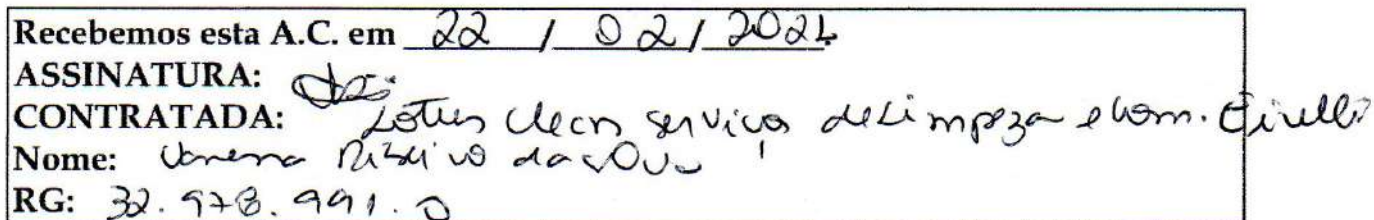 Recebemos esta A.C. em 22 / 02 / 2021
ASSINATURA:
CONTRATADA: Lotus Clean serviços de Limpeza e Com. Eirelli
Nome: Vanessa Ribeiro da
RG: 32.978.991.0